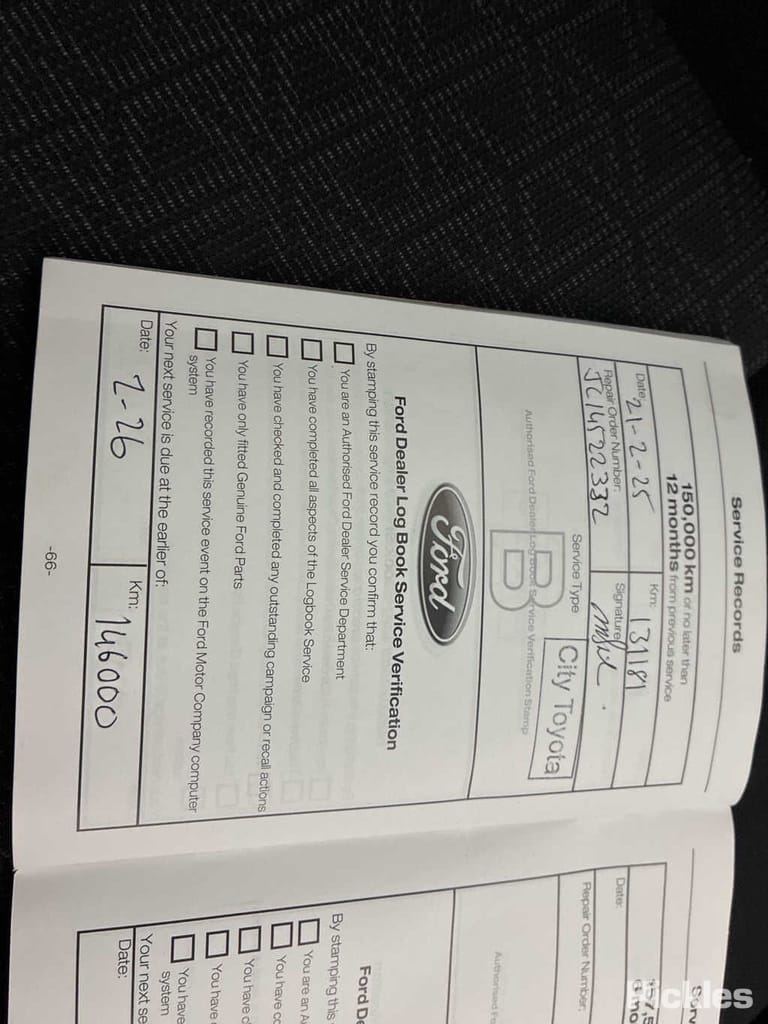 Service Records
150,000 km or no later than
12 months from previous service
Date: 21-2-25
Km: 131181
Repair Order Number: JC14522332
Signature
Service Type
City Toyota
B
D
Authorised Ford Dealer Log Book Service Verification Stamp
Ford
Ford Dealer Log Book Service Verification
By stamping this service record you confirm that:
You are an Authorised Ford Dealer Service Department
You have completed all aspects of the Logbook Service
You have checked and completed any outstanding campaign or recall actions
You have only fitted Genuine Ford Parts
You have recorded this service event on the Ford Motor Company computer
system
Your next service is due at the earlier of:
Date: 2-26
Km: 146000
-66-
Serv
157,5
Date:
Repair Order Number:
Authorised Fo
Ford De
By stamping this
You are an A
You have co
You have c
You have
You have
system
Your next se
Date:
Pickles